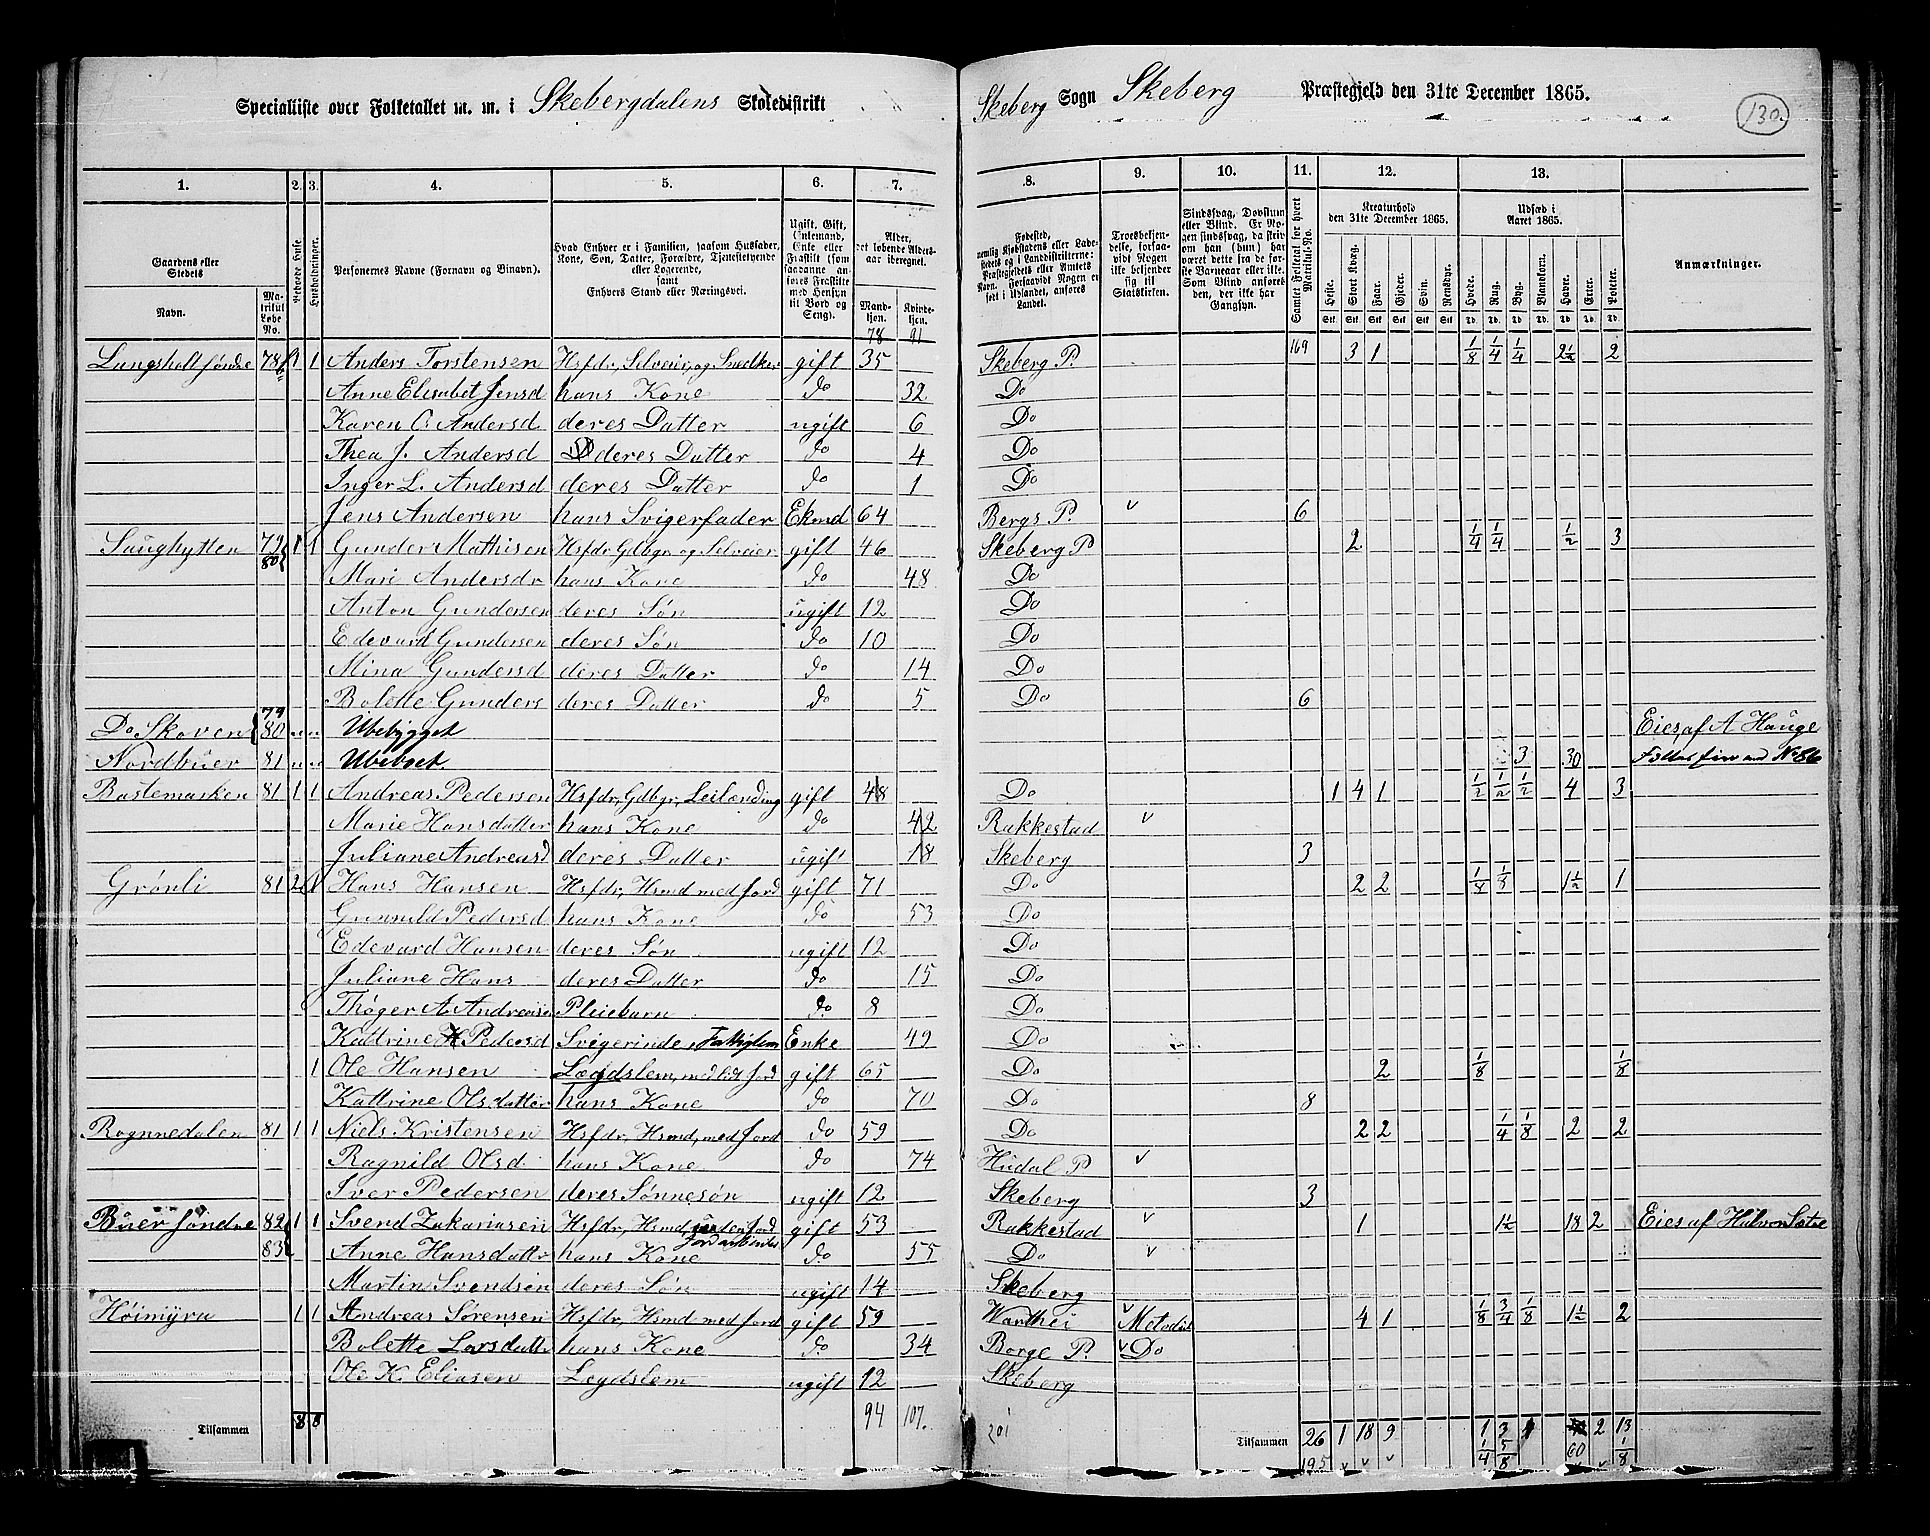 Specialliste over Folketallet m. m. i Skebergdalens Skoledistrikt Skeberg Sogn Skeberg Præstegjeld den 31te December 1865.
130.
1. 2. 3. 4. 5. 6. 7. 8. 9. 10. 11. 12. 13.
Gaardens eller Stedets
Navn.
Matrikul Løbe No.
Beboede Huse.
Husholdninger.
Personernes Navne (Fornavn og Binavn).
Hvad Enhver er i Familien, saasom Husfader, Kone, Søn, Datter, Forældre, Tjenestetyende eller Logerende, samt Enhvers Stand eller Næringsvei.
Ugift, Gift, Enkemand, Enke eller Fraskilt (som saadanne anføres Fraskilte med Hensyn til Bord og Seng).
Alder, det løbende Aldersaar iberegnet.
Mandkjøn. Kvindekjøn.
78 91
Fødested, nemlig Kjøbstadens eller Ladestedets og i Landdistrikterne: Præstegjeldets eller Amtets Navn. Forsaavidt Nogen er født i Udlandet, anføres Landet.
Troesbekjendelse, forsaavidt Nogen ikke bekjender sig til Statskirken.
Sindssvag, Døvstum eller Blind. Er Nogen sindssvag, da skrives om han (hun) har været dette fra de første Barneaar eller ikke. Som Blind anføres den, der ikke har Gangsyn.
Samlet Folketal for hvert Matrikul-No.
Kreaturhold den 31te December 1865.
Heste. Stort Kvæg. Faar. Gjeder. Svin. Rensdyr.
Udsæd i Aaret 1865.
Hvede. Rug. Byg. Blandkorn. Havre. Erter. Poteter.
Anmærkninger.
Lungsholt søndre 78 1 1 Anders Torstensen Hsfdr, Selveier, og Snedker gift 35 Skeberg P. 169 3 1 1/8 1/4 1/4 2 1/2 2
Anne Elisabet Jensd hans Kone do 32 Do
Karen O. Andersd deres Datter ugift 6 Do
Thea J. Andersd deres Datter do 4 Do
Inger L. Andersd deres Datter do 1 Do
Jens Andersen hans Svigerfader Ekmd 64 Bergs P. v 6
Saughytten 79 80 1 1 Gunder Mathisen Hsfdr Gdbgr og Selveier gift 46 Skeberg P 2 1/4 1/4 1/2 3
Mari Andersdr hans Kone do 48 Do
Anton Gundersen deres Søn ugift 12 Do
Edevard Gundersen deres Søn do 10 Do
Mina Gundersd deres Datter do 14 Do
Bolette Gunders deres Datter do 5 Do 6
Do Skoven 79 80 Ubebygget Eies af A Hauge
Nordbuer 81 Ubeboet. 3 30
Bastemarken 81 1 1 Andreas Pedersen Hsfdr, Gdbgr, Leilænding gift 48 Do 1 4 1 1/2 1/2 1/2 4 3
Marie Hansdatter hans Kone do 42 Rakkestad v
Juliane Andreasd deres Datter ugift 18 Skeberg 3
Grønli 81 2 1 Hans Hansen Hsfdr, Hsmd med Jord gift 71 Do 2 2 1/8 1/8 1 1/2 1
Gunnild Pedersd hans Kone do 53 Do
Edevard Hansen deres Søn ugift 12 Do
Juliane Hans deres Datter do 15 Do
Thøger A. Andreasen Pleiebarn do 8 Do
Kattrine H Pedersd Svigerinde, Fattiglem Enke 49 Do
1 Ole Hansen Lægdslem, med lidt Jord gift 65 Do 2 1/8 1/8
Kattrine Olsdatter hans Kone do 70 Do 8
Rognnedalen 81 1 1 Niels Kristensen Hsfdr, Hsmd, med Jord do 59 Do 2 2 1/4 1/8 2 2
Ragnild Olsd. hans Kone do 74 Hudal P v
Iver Pedersen deres Sønnesøn ugift 12 Skeberg 3
Buer søndre 82 1 1 Svend Zakariasen Hsfdr, Hsmd, uden Jord Jordarbeider gift 53 Rakkestad v 1 1 1/2 18 2 Eies af Halvor Sætre
83 Anne Hansdattr hans Kone do 55 Do v
Martin Svendsen deres Søn ugift 14 Skeberg
Høimyra 1 1 Andreas Sørensen Hsfdr, Hsmd med Jord gift 59 v Metodis 4 1 1/8 3/4 1/8 1 1/2 2
Bolette Larsdattr hans Kone do 34 Borge P. v Do
Ole K. Eliasen Legdslem ugift 12 Skeberg
Tilsammen 8 8 94 107. 201 Tilsammen 26 1 18 9 1 1/4 3 5/8 60 2 13 1/8
195 v v v v v